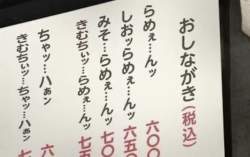 おしながき(税込)
らめぇ…んッ 六〇〇
しおッらめぇ…んッ 六五〇
みそ…らめぇ…んッ 七〇
きむちぃッ…らめぇ…んッ 七五
ちゃッ…ハぁん
きむちぃッ…ちゃッ…ハぁん 七